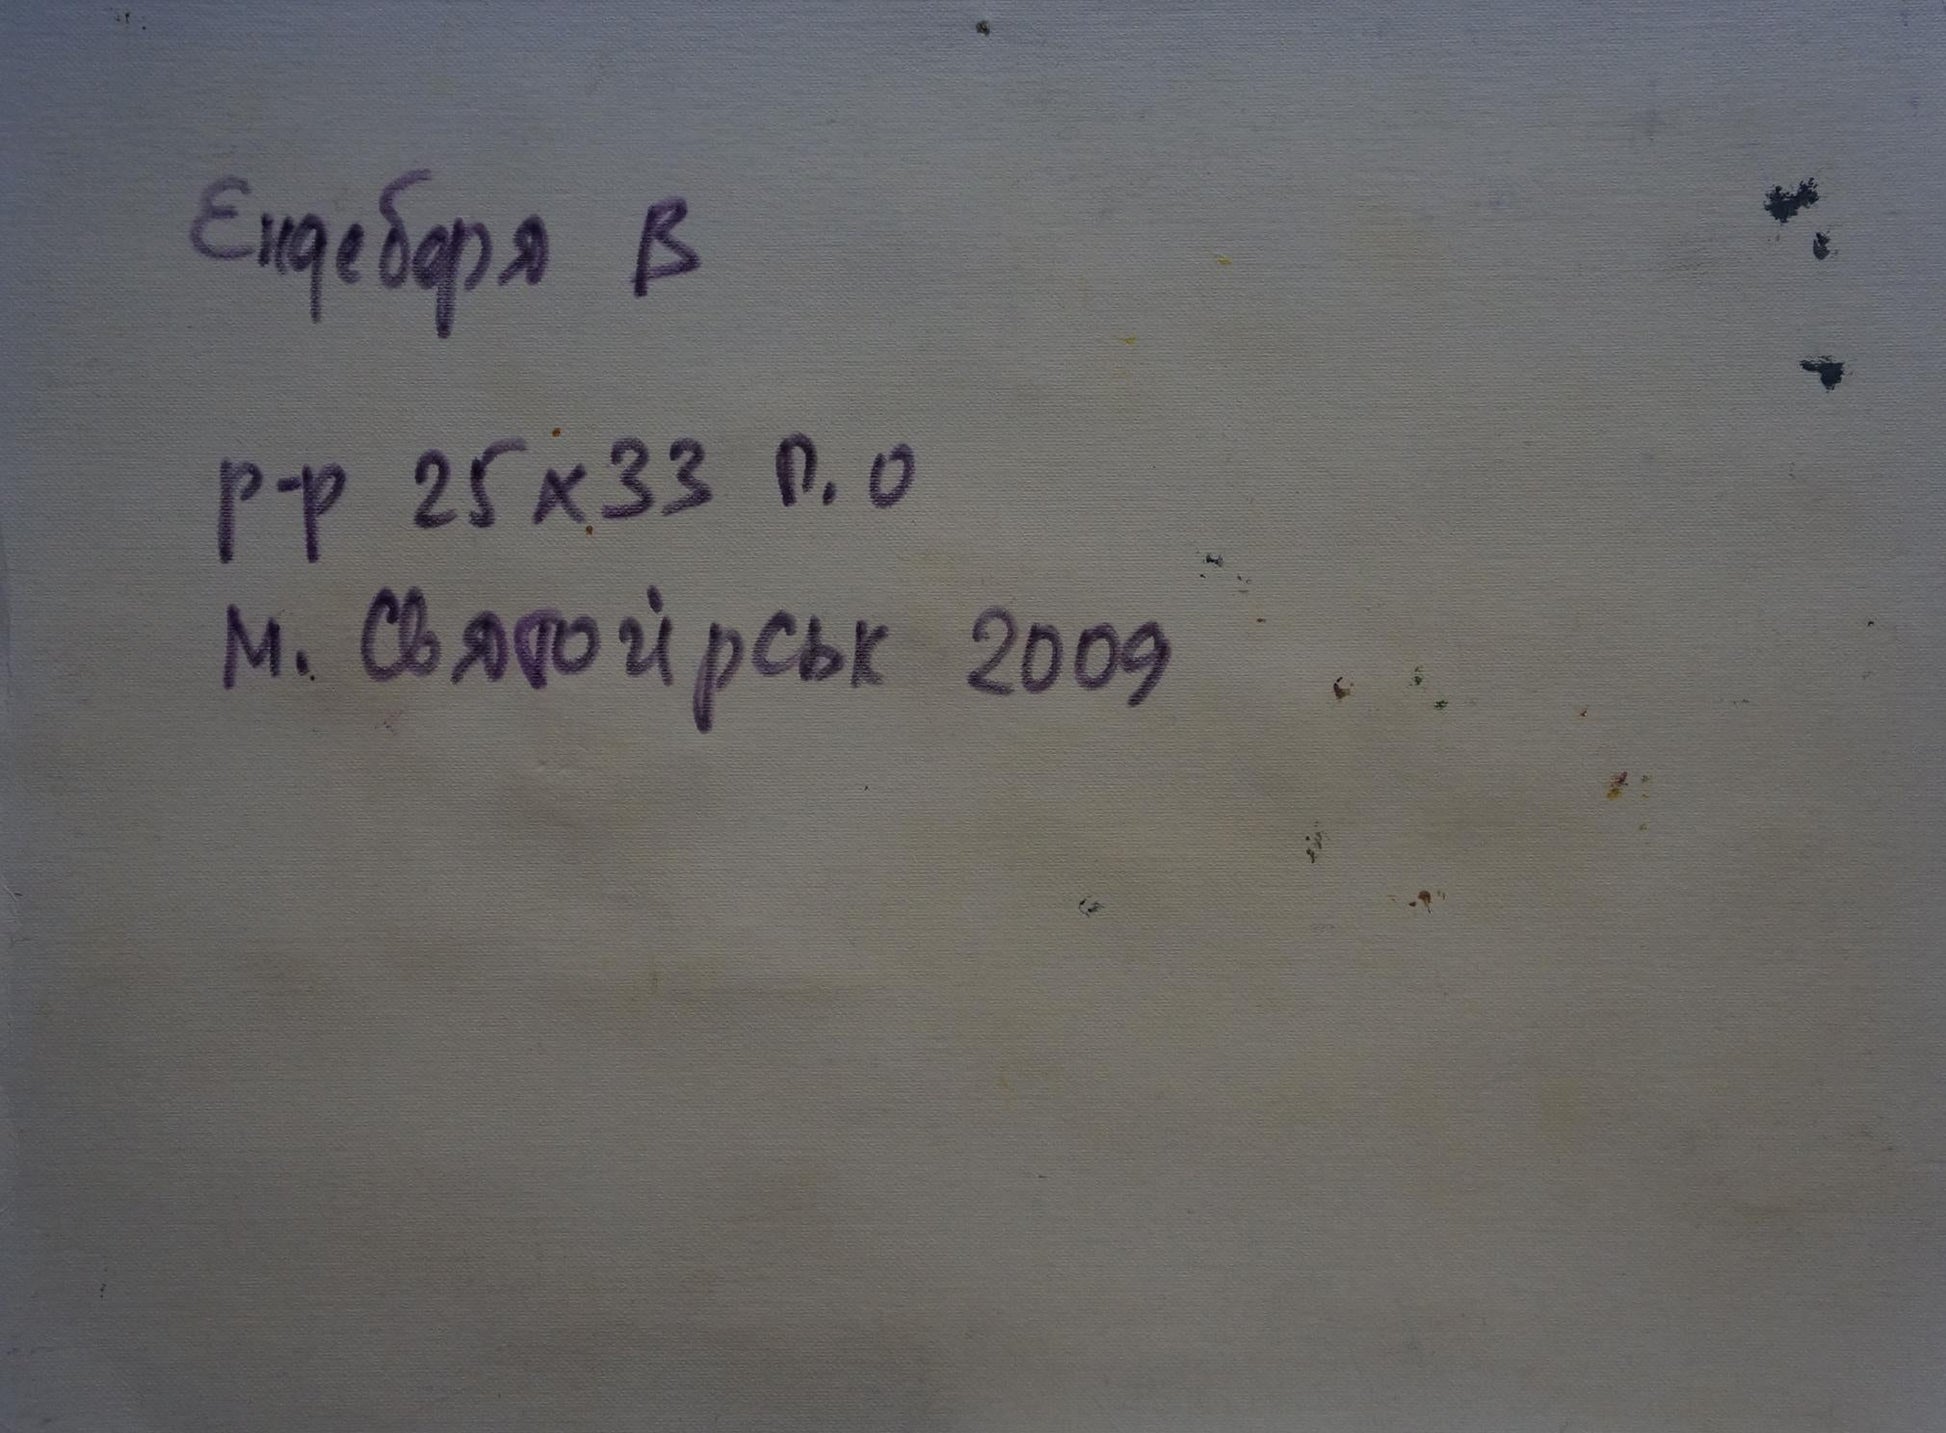 Ендебаря В
р-р 25х33 П.О
м. Святогірськ 2009